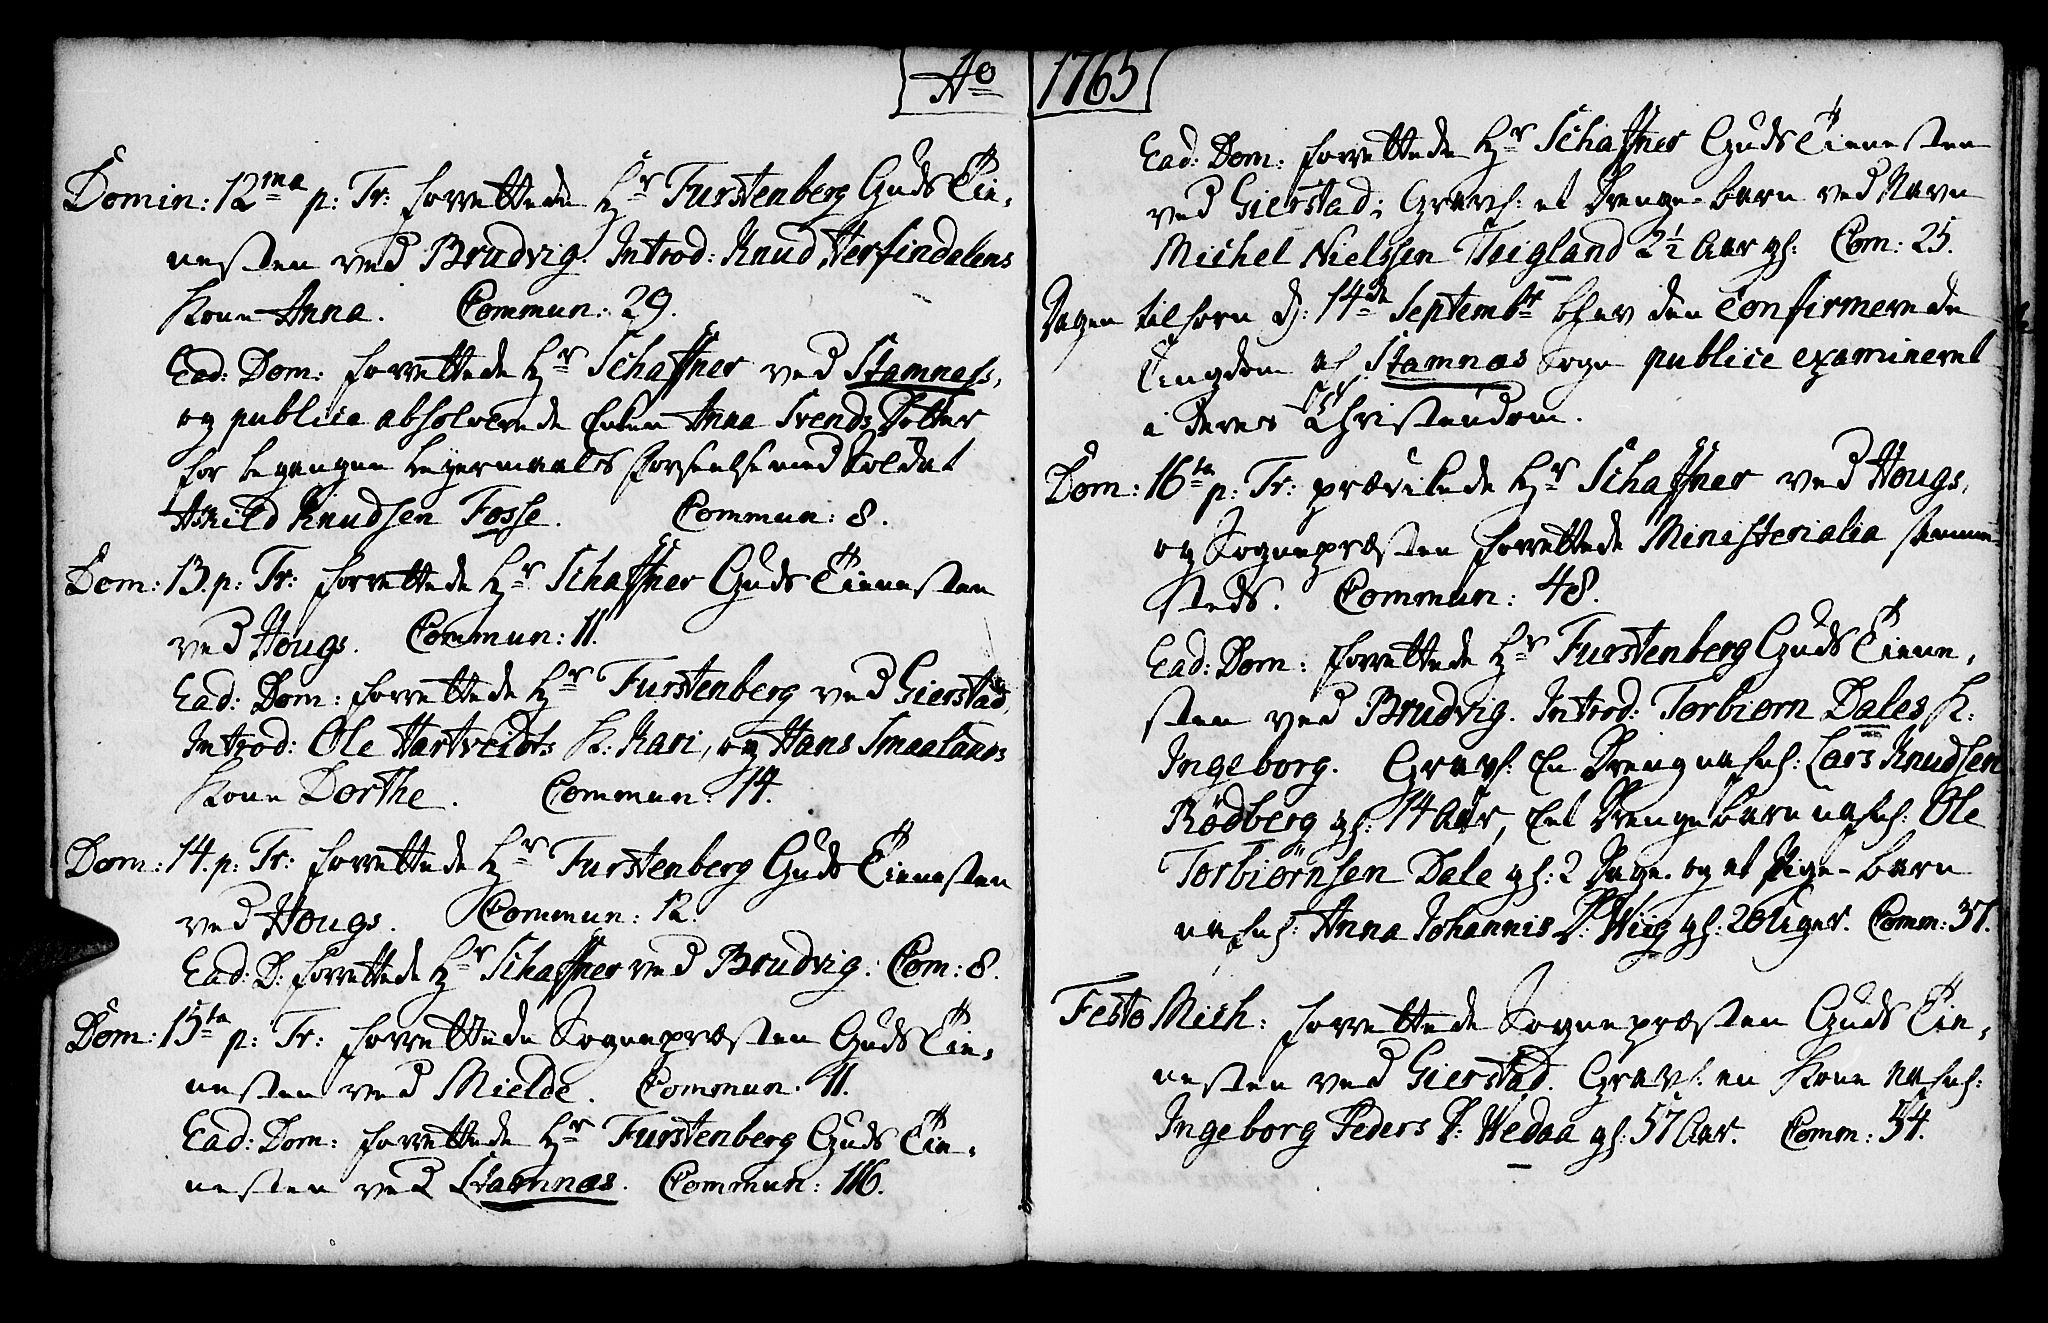 Ao 1765
Domin: 12ma p: Tr: forrettede Hr Furstenberg Guds Tie,
nesten ved Brudvig. Introd: Knud Herfindalens
Kone Anna. Commun: 29.
Ead: Dom: forrettede Hr Schaffner ved Stamness,
og publice absolverede Enken Anna Svends Dotter
for begangne Leyermaals Forseelse med Soldat
Askild Knudsen Fosse. Commun: 8.
Dom: 13. p: Tr: forrettede Hr Schaffner Guds Tienesten
ved Hougs. Commun: 11.
Ead: Dom: forrettede Hr Furstenberg ved Gierstad,
Introd: Ole Hartveidts K: Kari, og Hans Smaalands
Kone Dorthe. Commun: 14.
Dom: 14. p: Tr: forrettede Hr Furstenberg Guds Tienesten
ved Hougs. Commun: 12.
Ead: D: forrettede Hr Schaffner ved Brudvig. Com: 8.
Dom: 15ta p: Tr: forrettede Sognepræsten Guds Tie,
nesten ved Mielde. Commun: 11.
Ead: Dom: forrettede Hr Furstenberg Guds Tie,
nesten ved Stamnæs. Commun: 116.
Ead: Dom: forrettede Hr Schaffner Guds Tienesten
ved Gierstad; Gravf: et Drenge-barn ved Navn
Michel Nielssen Teigland 2½ Aar gl: Com: 25.
Dagen tilforn d: 14de Septembr blev den Confirmerede
Ungdom af Stamnæs Sogn publice examineret
i deres Christendom.
Dom: 16ta p: Tr: prædikede Hr Schaffner ved Hougs,
og Sognepræsten forrettede Ministerialia samme
steds. Commun: 48.
Ead: Dom: forrettede Hr Furstenberg Guds Tiene,
sten ved Brudvig. Introd: Torbiørn Dales K:
Ingeborg. Gravf: En Dreng nafnl: Lars Knudsen
Rødberg gl: 14 Aar, Eet Drengebarn nafnl: Ole
Torbiørnsen Dale gl: 2 Dage. og et Pige-barn
nafnl: Anna Johannis D: Wiig gl: 20 Uger. Comm: 37.
Festo Mich: forrettede Sognepræsten Guds Tie,
nesten ved Gierstad. Gravf: en Kone nafnl:
Ingeborg Peders D: Wedaa gl: 57 Aar. Comm: 54.